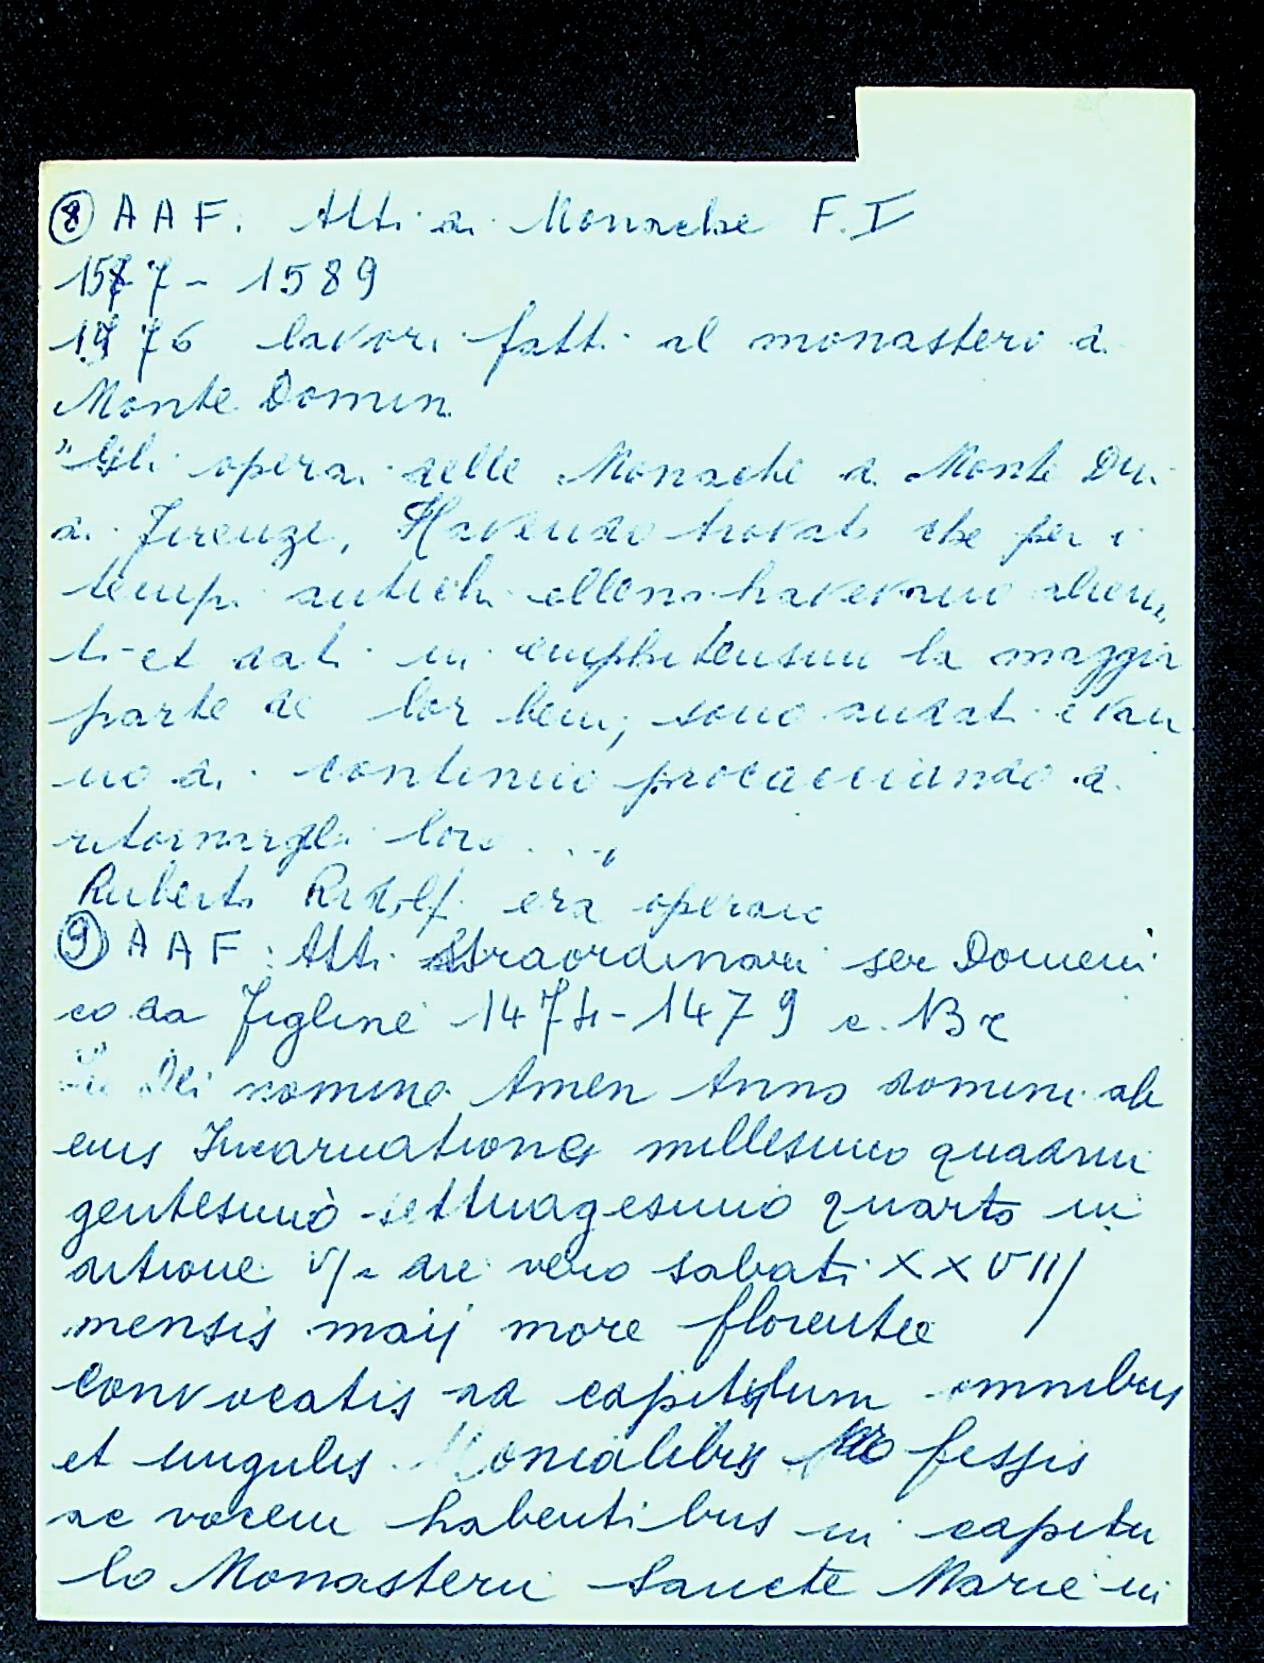 ⑧ A A F. Atti di Monache F. I
1577 - 1589
1576 lavori fatti al monastero di
Monte Domin.
"Gli operai delle Monache di Monte Dni.
di Firenze, Havendo trovato che per i
tempi antichi elleno havevano aliena,
ti et dati in emphiteusim la maggior
parte de lor beni, sono andati e van
no di continuo procacciando di
ritornargli loro . . . "
Ruberto Ridolfi era operaio
⑨ A A F. Atti Straordinari ser Domeni
co da Figline 1474-1479 c. 13 r
In Dei nomine Amen Anno domini ab
eius Incarnatione millesimo quadrin
gentesimo settuagesimo quarto in
ditione V/a die vero sabati XXVIII
mensis maij more florentie
convocatis ad capitulum omnibus
et singulis Monialibus Pro fessis
ac vocem habentibus in capitu
lo Monasterii Sancte Marie in